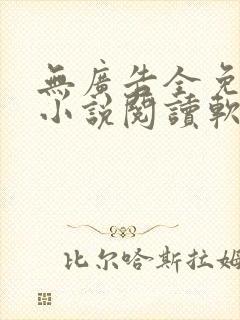 無廣告全免
小說閱讀軟
比尔哈斯拉姆